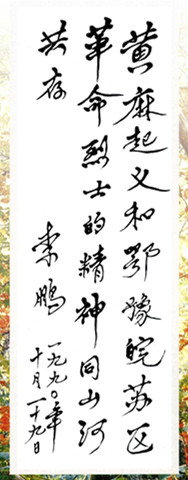 黄麻起义和鄂豫皖苏区
革命烈士的精神同山河
共存
李鹏
一九九〇年
十月二十九日